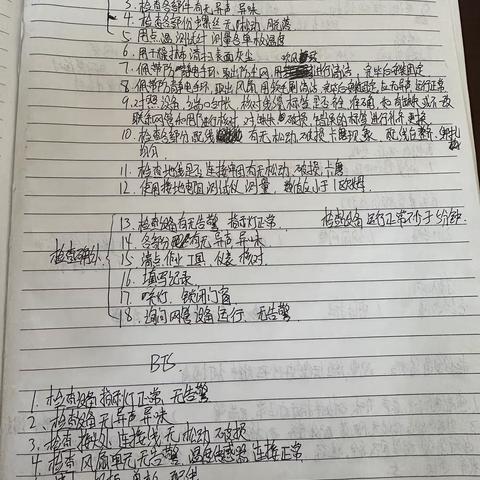 3. 检查各部件有无异声异味
4. 检查各部份螺丝无松动、脱落
5. 用点温测试计测量各单板温度
6. 用干燥抹布清扫表面灰尘
7. 佩带防静电手环、取出防尘网、用进行清洁,完毕后装固定
8. 佩带防静电手环,取出风扇用软毛刷清洁,完毕后装固定,应无异声运行正常
9. 对照设备、端口台帐、核对线缆标签是否准确、和有缺失或不一致
联系网管和用户进行核对,对缺失、破损、错误的标签进行补齐更换
10. 检查各部分配线有无松动、破损、卡磨现象、配线自然、绑扎
均匀
11. 检查地线是否连接牢固有无松动、破损、卡磨
12. 使用接地电阻测试仪测量、数值应小于1欧姆.
检查确认
13. 检查设备有无告警 指示灯正常. 检查设备运行正常不小于5分钟.
14. 各部分有无异声异味
15. 清点作业工具、仪表核对
16. 填写记录
17. 关灯、锁闭门窗
18. 询问网管设备运行、无告警.
BTS
1. 检查设备指示灯正常、无告警
2、检查设备无异声异味
3、检查接头、连接线无松动、破损
4、检查风扇单元无告警 温度传感器连接正常